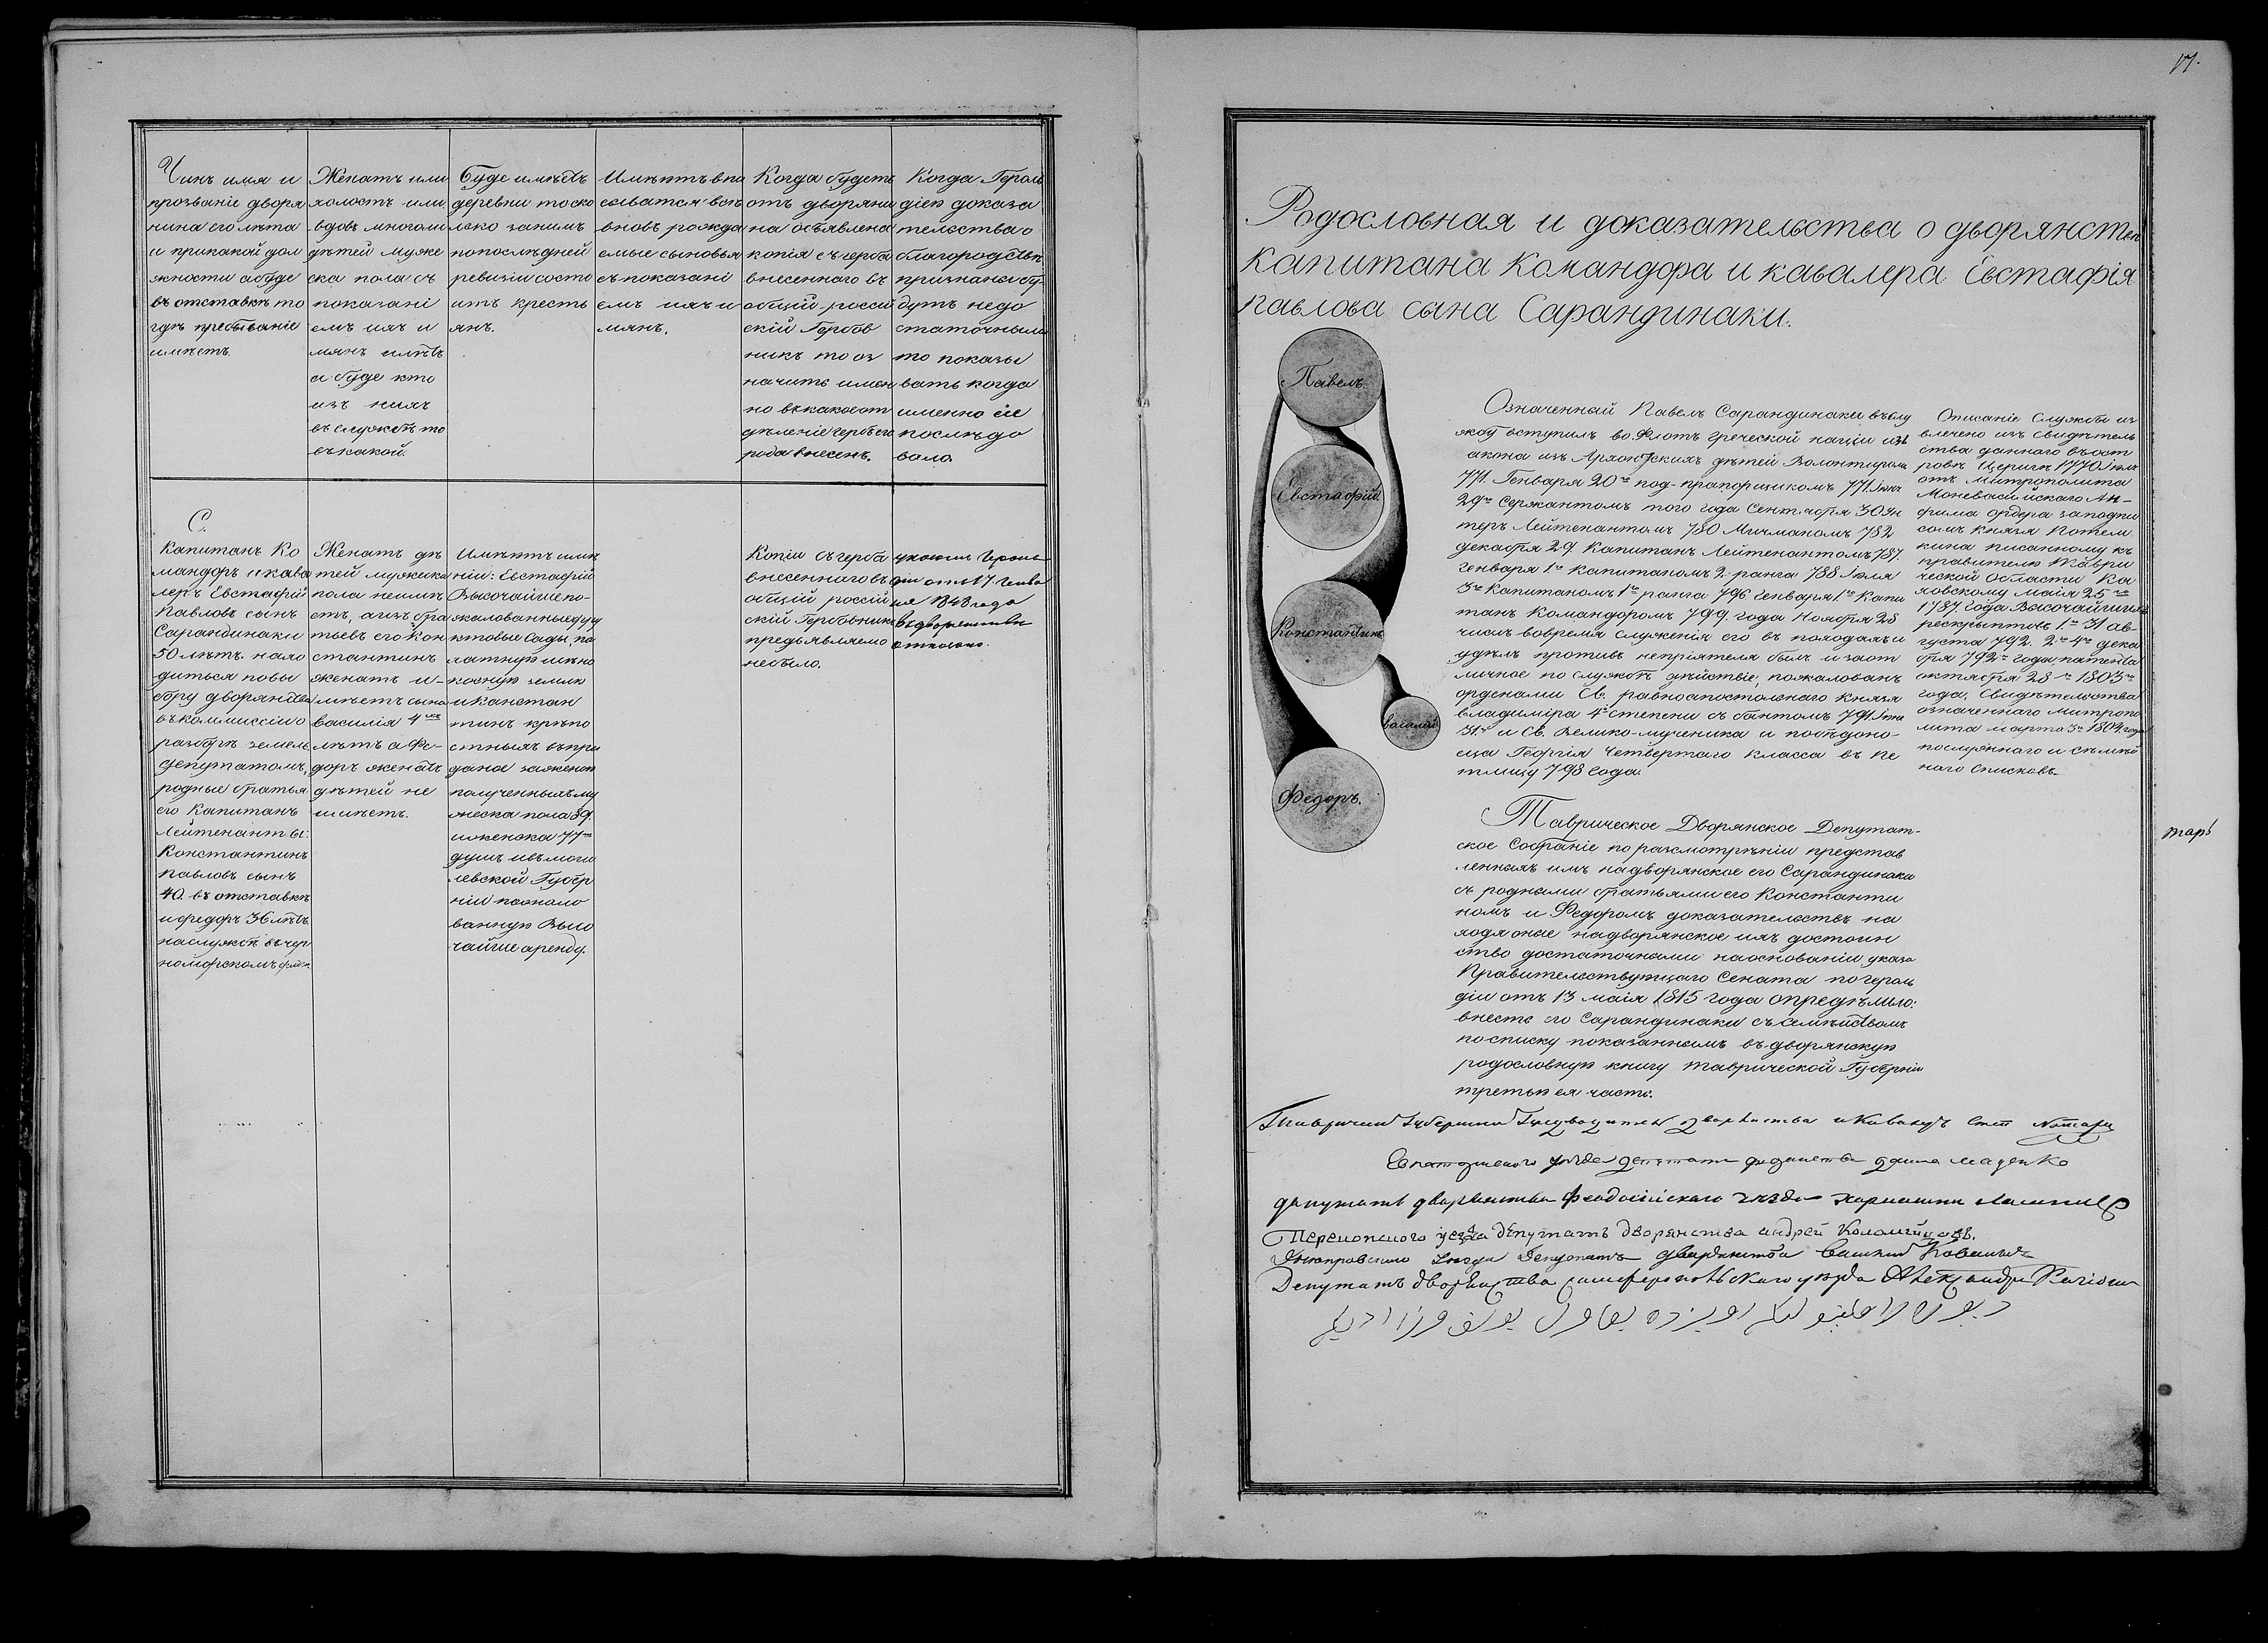 Чинъ имя и
прозваніе дворя
нина его лѣта
и при какой дол
жности а буде
въ отставкѣ то
гдѣ пребываніе
имѣетъ.
Женатъ или
холостъ или
вдовъ многоли
дѣтей муже
ска пола съ
показані
емъ ихъ и
мянъ и лѣтъ
а буде кто
изъ нихъ
въ службѣ то
въ какой.
Буде имѣетъ
деревни то ско
лько занимъ
по последней
ревизіи состо
итъ кресть
янъ.
Имѣетъ впи
сыватся всѣ
вновь рожда
емые сыновья
съ показані
емъ ихъ и
мянъ.
Когда будетъ
отъ дворяни
на объявлена
копія съ герба
внесеннаго въ
общій россій
скій Гербов
никъ то оз
начить имен
но въ какое от
дѣленіе гербъ его
рода внесенъ.
Когда Героль
діею доказа
тельства о
благородствѣ
признаны бу-
дутъ недо
статочными
то показы
вать когда
именно сіе
послѣдо
вало.
С.
Капитанъ Ко
мандоръ и кава
леръ Евстафій
Павловъ сынъ
Сарандинаки
50 лѣтъ. нахо
диться по вы
бору дворянства
въ коммиссіи о
разборѣ земель
депутатомъ,
родные братья
его Капитанъ
Лейтенанты:
Константинъ
Павловъ сынъ
40. въ отставкѣ
и федоръ 36 лѣтъ
на службѣ въ чер
номорскомъ флотѣ
Женатъ дѣ
тей мужеска
пола неимѣ
етъ, а изъ бра
тьевъ его Кон
стантинъ
женатъ и-
мѣетъ сына
василія 4хъ
лѣтъ а Фе-
доръ женатъ
дѣтей не
имѣетъ.
Имѣетъ имѣ
ніи: Евстафій
Высочайше по-
жалованные фру
ктовые сады, па
хатную и сѣно
косную землю
и Констан
тинъ крѣпо
стныхъ въ при
даное за женою
полученныхъ му
жеска пола 89.
и женска 77
душъ и въ моги
левской Губер
ніи пожало
ванную Высо
чайше аренду.
Копіи съ герба
внесеннаго въ
общій россій
скій Гербовникъ
предъявляемо
небыло.
указомъ Героль
діи отъ 17 Генва
ря 1843 года
въ дворянствѣ
отказано.
17.
Родословная и доказательства о дворянствѣ
капитана Командора и кавалера Евстафія
павлова сына Сарандинаки.
Павелъ.
Евстафій.
Константинъ
василій
Федоръ.
Означенный Павелъ Сарандинаки въ слу
жбу вступилъ во Флотъ греческой націи изъ
акона изъ Архонтскихъ дѣтей Волонтиромъ
771. Генваря 20го под-прапорщикомъ 771. Іюня
29го Сержантомъ того года Сентября 30 Ун
теръ Лейтенантомъ 780 Мичманомъ 782
декабря 29. Капитанъ Лейтенантомъ 787.
Генваря 1го Капитаномъ 2. ранга 788 Іюля
3го Капитаномъ 1го ранга 796 генваря 1го Капи
танъ Командоромъ 799. года Ноября 28
числъ вовремя служенія его въ походахъ и
удѣлъ противъ непріятеля былъ и заот
личное по службѣ дѣйствіе, пожалованъ
орденами Св. равноапостольнаго князя
владиміра 4й степени съ бантомъ 791. Іюня
31го и Св. Велико-мученика и победоно-
сца Георгія Четвертаго класса въ пе
тлицу 798 года.
Описаніе Службы из
влечено изъ Свидѣтель
ства даннаго въ ост
ровѣ Церигѣ 1770 Іюля
отъ Митрополита
Моневасійскаго Ан-
фима ордера за подпи
сомъ князя Потем
кина писанному къ
правителю Таври
ческой области Ка
ховскому маія 25го
1787. года Высочайшихъ
рескриптовъ 1го 31 ав-
густа 792. 2го 4го дека
бря 792го года, патента
октября 28го 1803го
года, Свидѣтельства
означеннаго митропо
лита марта 3го 1804. года
послужнаго и семей
наго Списковъ.
Таврическое Дворянское Депутат-
ское Собраніе по разсмотрѣніи представ
ленныхъ имъ на дворянское его Сарандинаки
съ родными братьями его Константи
номъ и Федоромъ доказательствъ на
ходя оные на дворянское ихъ достоин
ство достаточными на основаніи указа
Правительствующаго Сената по героль
діи отъ 13 маія 1815 года опредѣлило:
внесть его Сарандинаки съ Семействомъ
по списку показаннымъ въ дворянскую
родословную книгу таврической Губерніи
третью ея часть.
тарь
Таврический Губернский Предводитель дворянства и Кавалеръ
депутатъ дворянства Феодосійскаго уезда
Перекопскаго уезда депутатъ дворянства андрей Коломийцовъ.
Днепровскаго уезда Депутатъ дворянства
Депутатъ дворянства симферопольскаго уезда Александръ